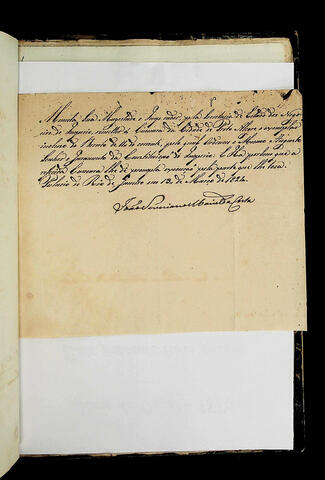 Manda Sua Magestade o Imperador, pela Secretaria de Estado dos Negocios
do Imperio, remetter á Camara da Cidade de Porto Alegre o exemplar
incluso do Decreto de 11 do corrente, pelo qual Ordenou o Mesmo Augusto
Senhor o Juramento da Constituição do Imperio: E Ha por bem que a
referida Camara lhe dê prompta execução pela parte que lhe toca.
Palacio do Rio de Janeiro em 13 de Março de 1824.
João Severiano Maciel da Costa